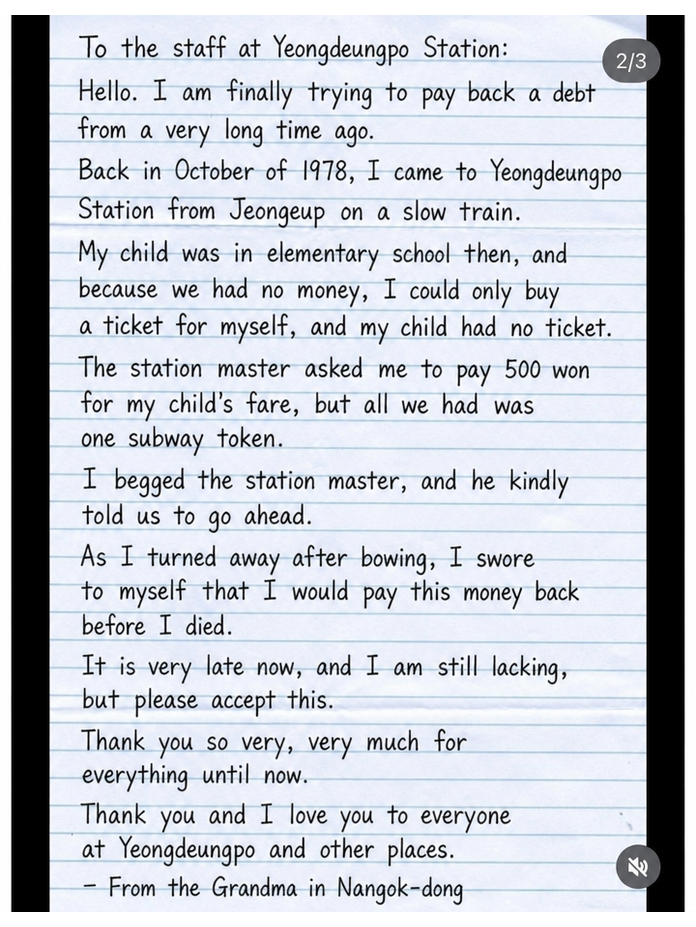 To the staff at Yeongdeungpo Station:
2/3
Hello. I am finally trying to pay back a debt
from a very long time ago.
Back in October of 1978, I came to Yeongdeungpo
Station from Jeongeup on a slow train.
My child was in elementary school then, and
because we had no money, I could only buy
a ticket for myself, and my child had no ticket.
The station master asked me to pay 500 won
for my child's fare, but all we had was
one subway token.
I begged the station master, and he kindly
told us to go ahead.
As I turned away after bowing, I swore
to myself that I would pay this money back
before I died.
It is very late now, and I am still lacking,
but please accept this.
Thank you so very, very much for
everything until now.
Thank you and I love you to everyone
at Yeongdeungpo and other places.
- From the Grandma in Nangok-dong